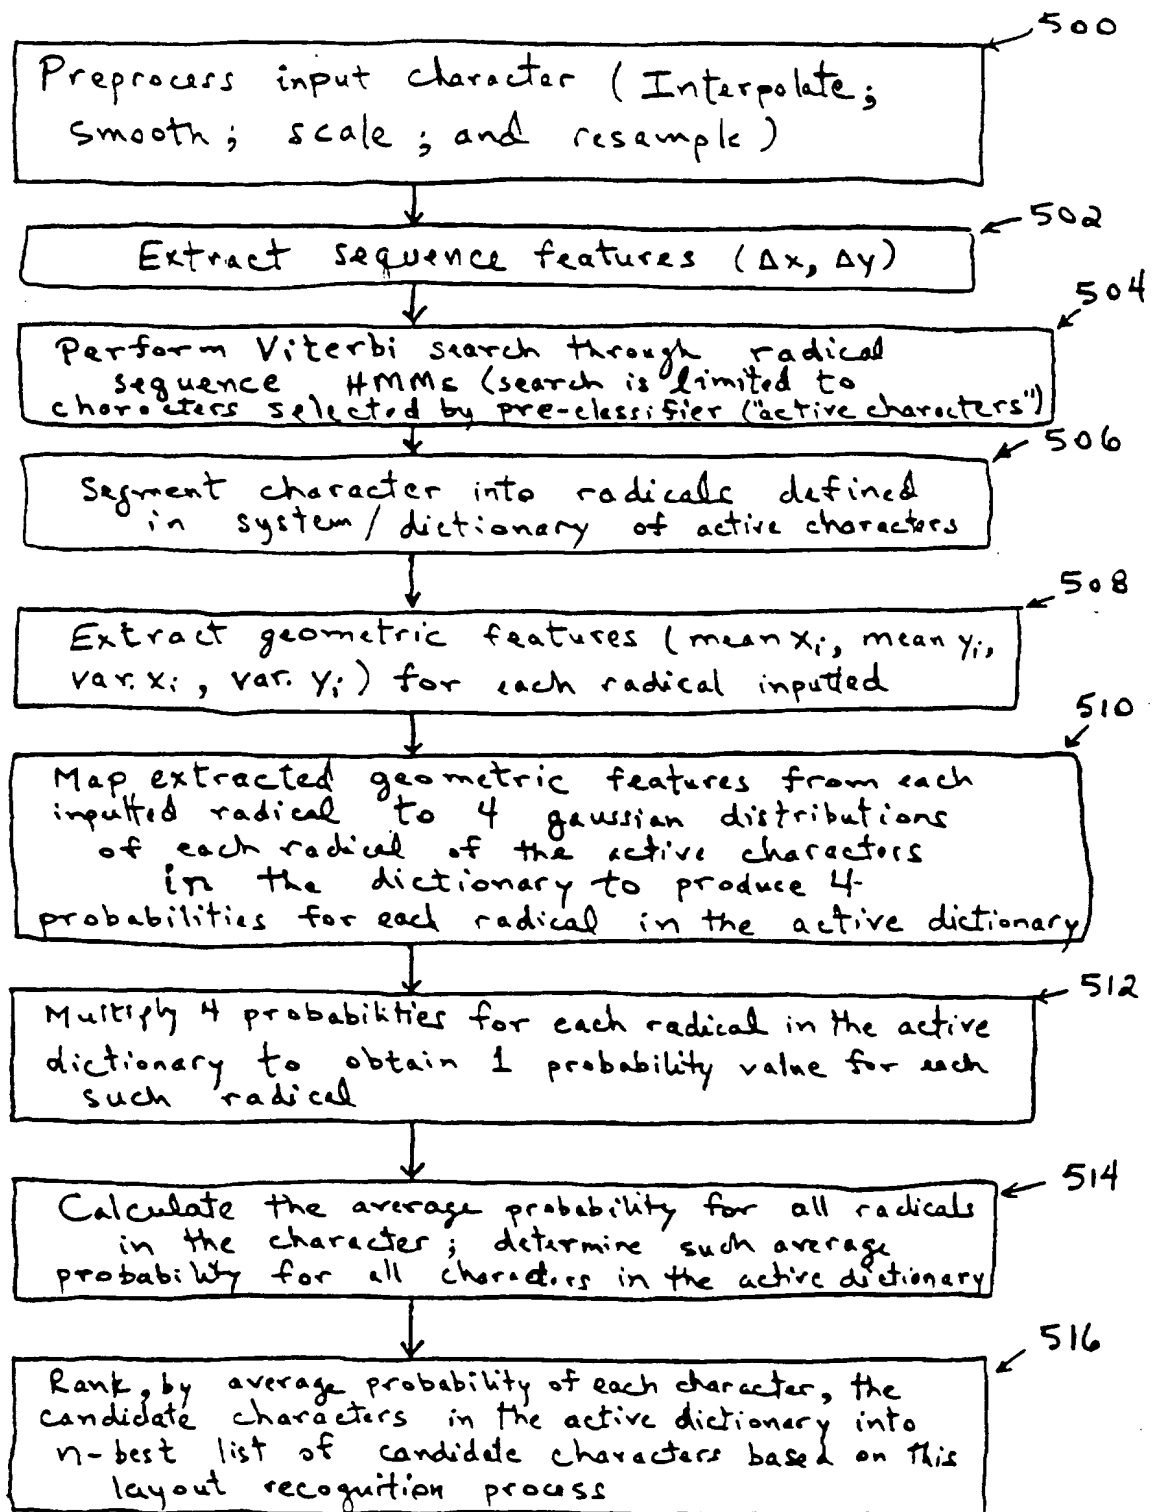 500
Preprocess input character (Interpolate;
smooth; scale; and resample)
502
Extract sequence features (Δx, Δy)
504
Perform Viterbi search through radical
sequence HMMs (search is limited to
characters selected by pre-classifier ("active characters")
506
Segment character into radicals defined
in system/dictionary of active characters
508
Extract geometric features (mean xi, mean yi,
var. xi, var. yi) for each radical inputted
510
Map extracted geometric features from each
inputted radical to 4 gaussian distributions
of each radical of the active characters
in the dictionary to produce 4
probabilities for each radical in the active dictionary
512
Multiply 4 probabilities for each radical in the active
dictionary to obtain 1 probability value for each
such radical
514
Calculate the average probability for all radicals
in the character; determine such average
probability for all characters in the active dictionary
516
Rank, by average probability of each character, the
candidate characters in the active dictionary into
n-best list of candidate characters based on this
layout recognition process